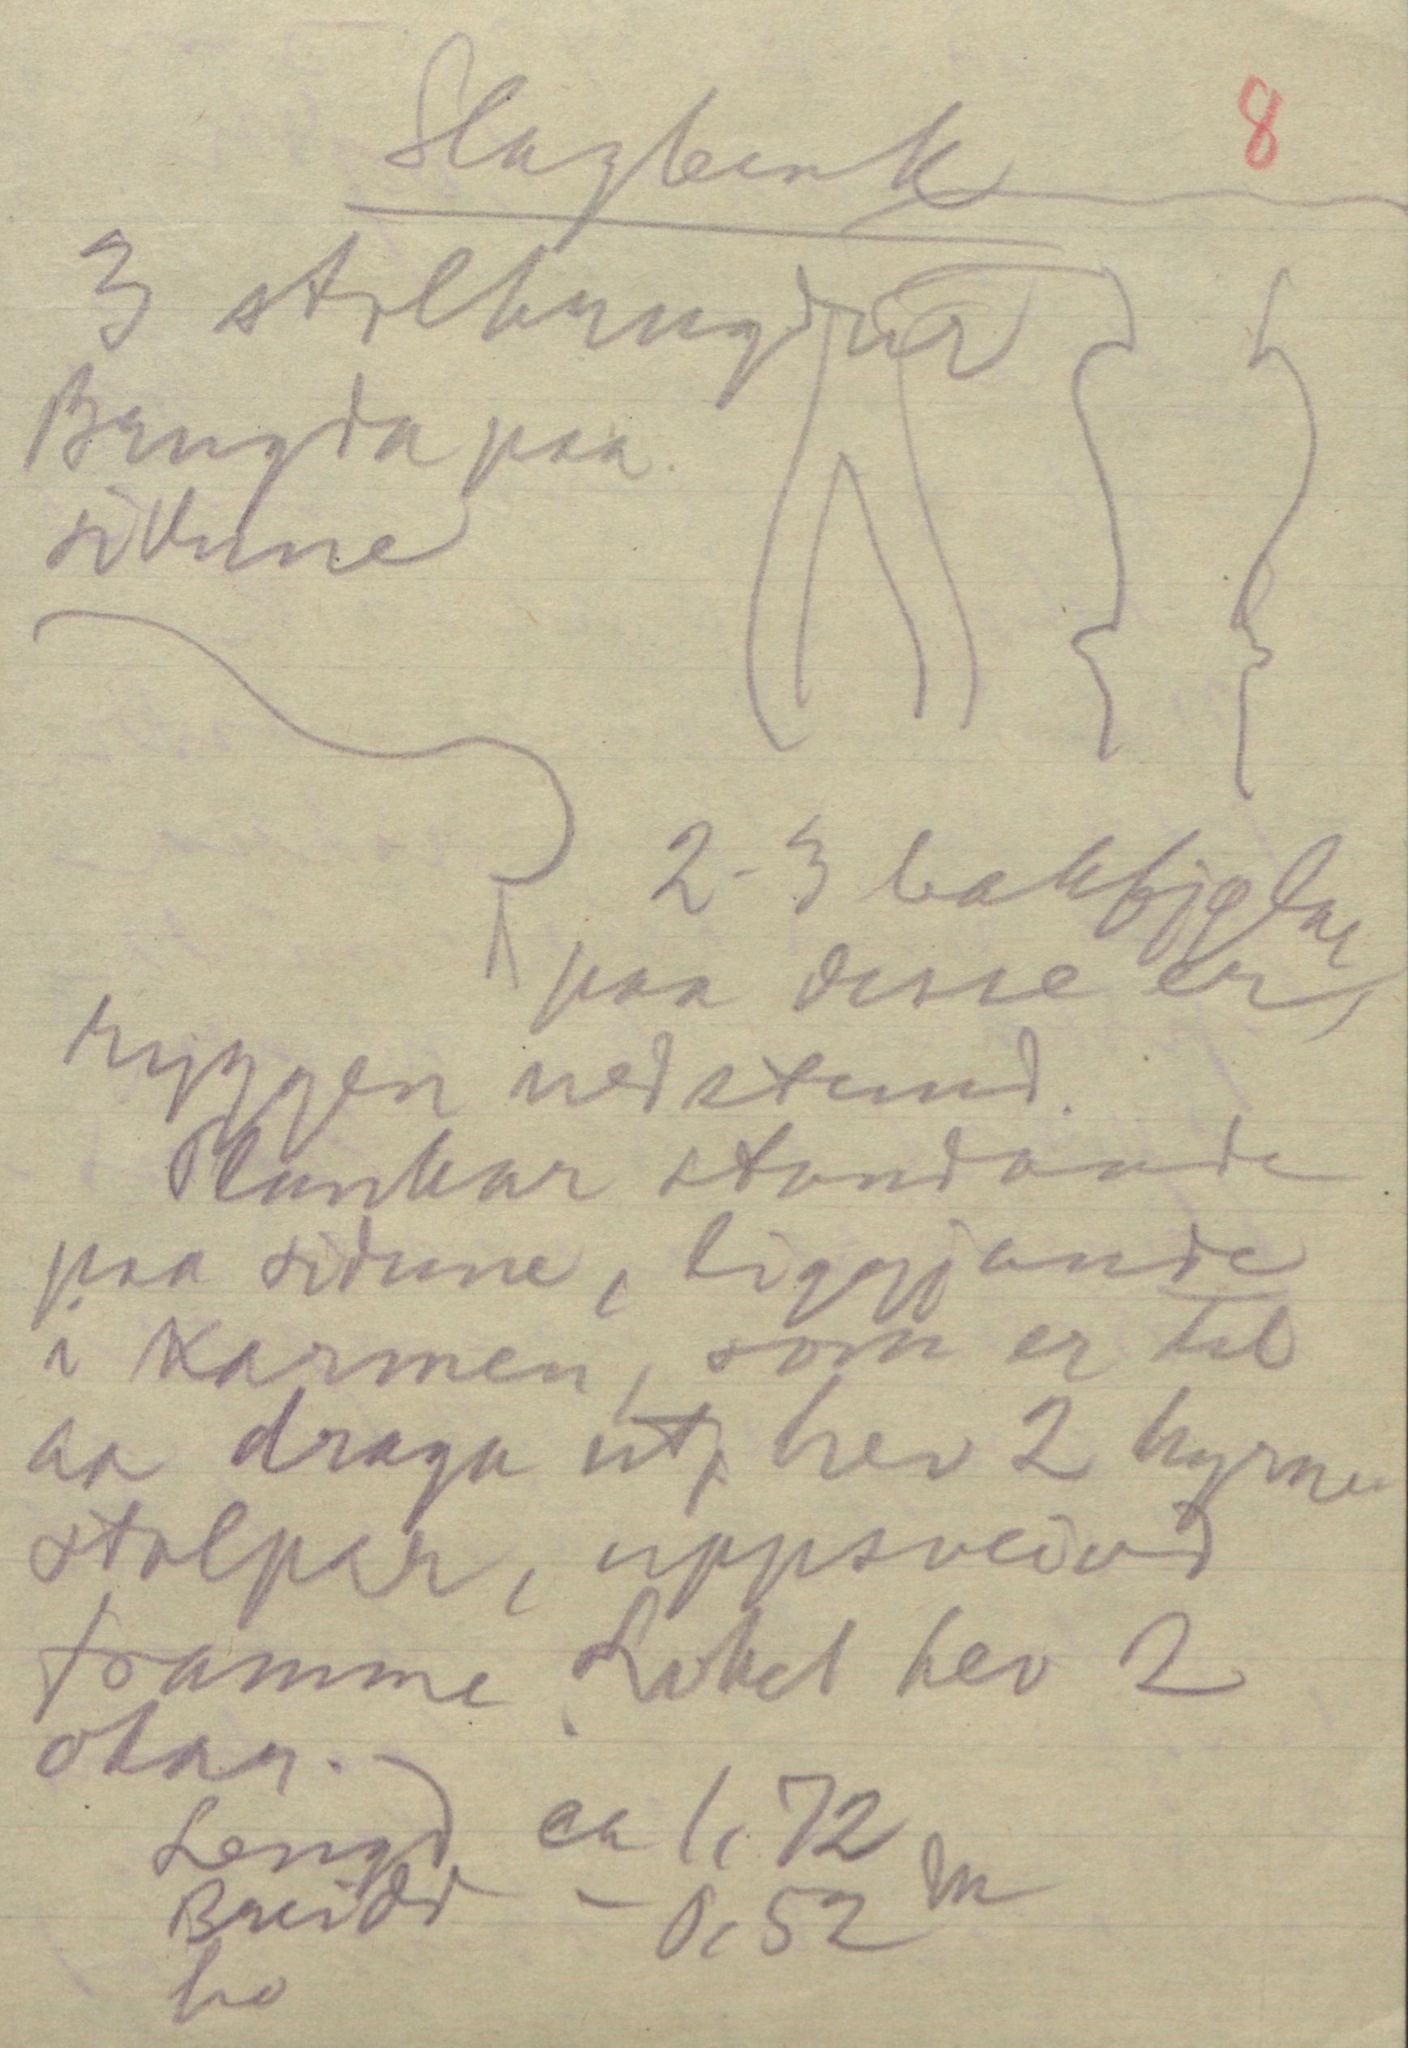 Slagbenk 8
3 stolbrugdur
Brugda paa
sidune
2-3 bakfjølar
paa desse er
ryggen nedstemd.
Plankar standande
paa sidune, liggjande
i Karmen, som er til
aa draga ut, hev 2 hyrne
stolpar, uppsveivd
framme. Loket hev 2
okar.
Lengd ca 1,72
Breidd - 0,52 m
ho